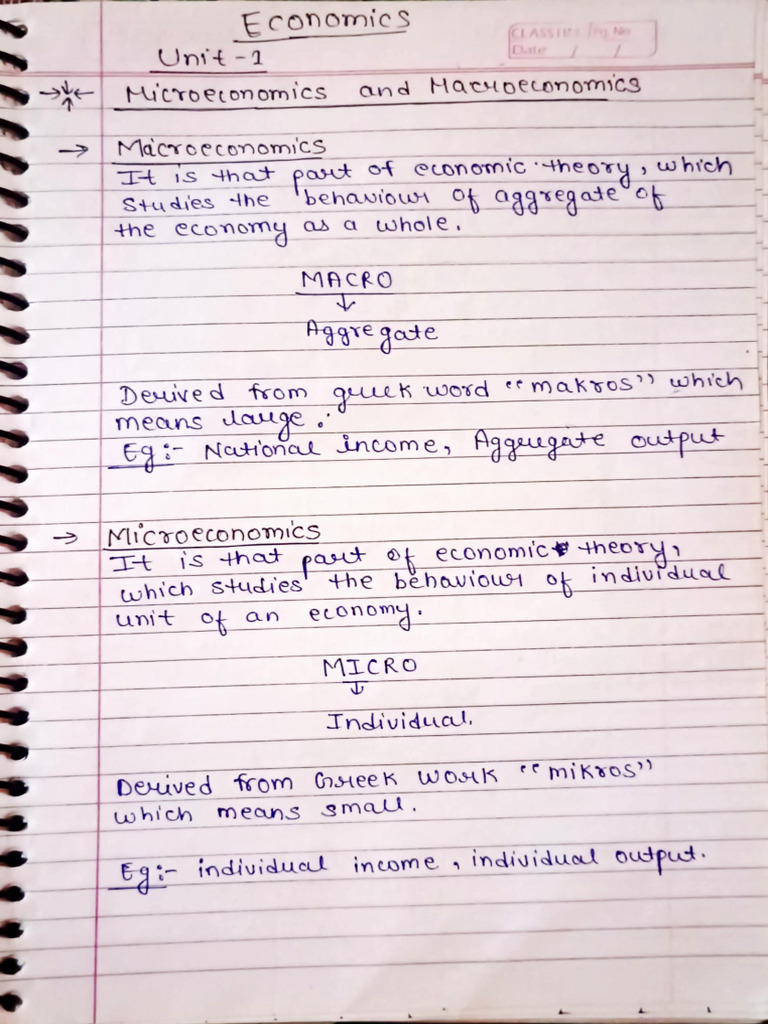 Economics
CLASSTIME Pg. No
Date / /
Unit - 1
Microeconomics and Macroeconomics
→ Macroeconomics
It is that part of economic theory, which
studies the behaviour of aggregate of
the economy as a whole.
MACRO
↓
Aggregate
Derived from greek word "makros" which
means large.
Eg:- National income, Aggregate output
→ Microeconomics
It is that part of economic theory,
which studies the behaviour of individual
unit of an economy.
MICRO
↓
Individual.
Derived from Greek work "mikros"
which means small.
Eg:- individual income, individual output.